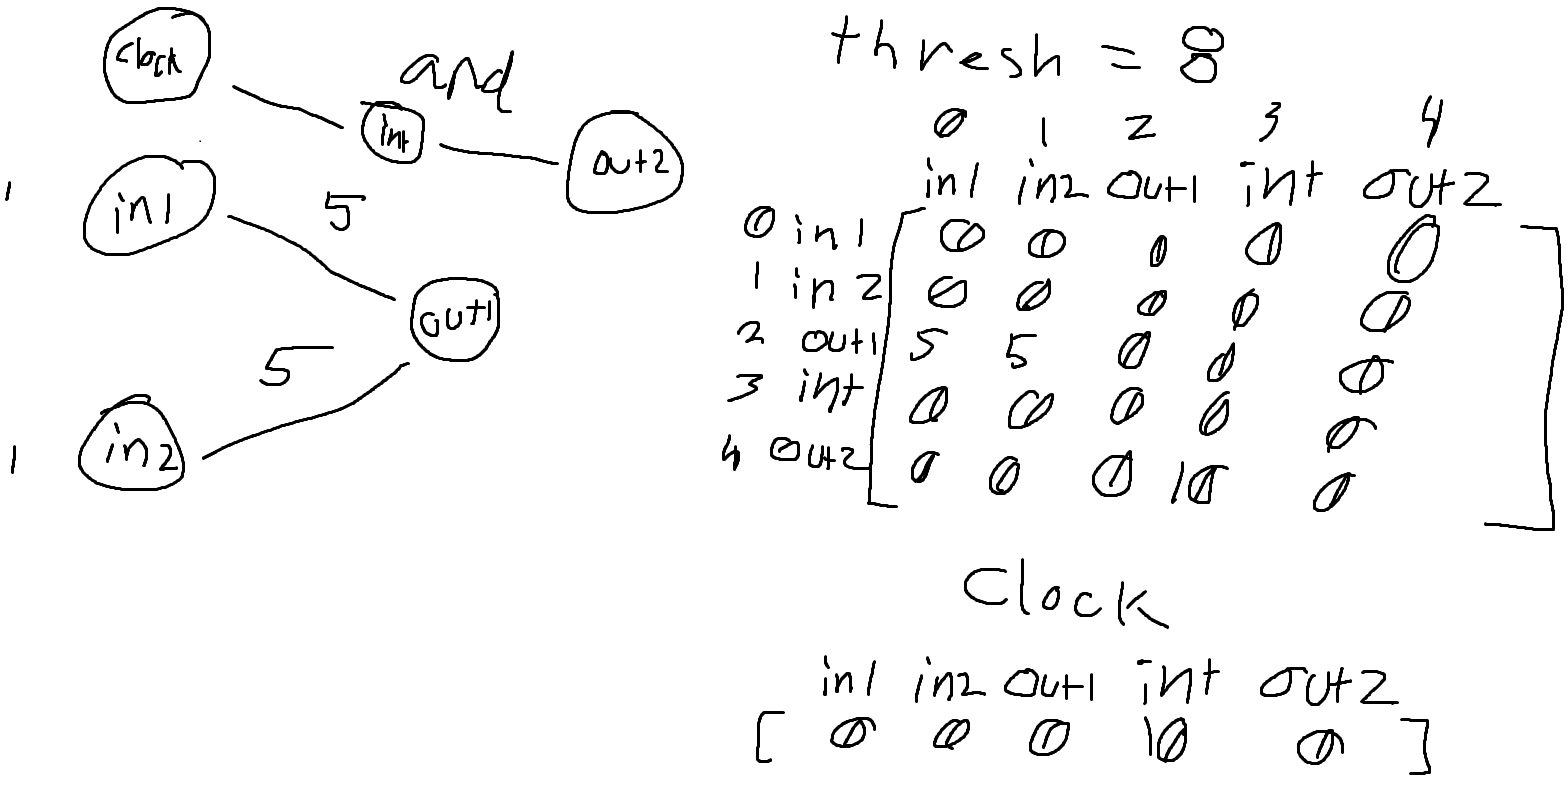 clock
and
int
out2
1
in1
5
out1
5
1
in2
thresh = 8
0 1 2 3 4
in1 in2 out1 int out2
0 in1 0 0 0 0 0
1 in2 0 0 0 0 0
2 out1 5 5 0 0 0
3 int 0 0 0 0 0
4 out2 0 0 0 10 0
Clock
in1 in2 out1 int out2
[ 0 0 0 10 0 ]